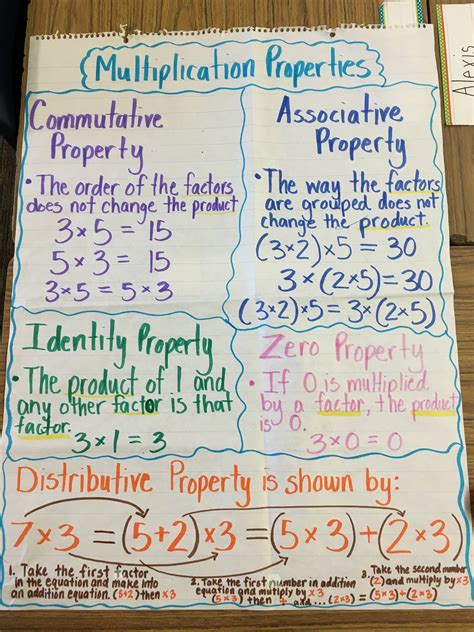 Multiplication Properties
Alexis
Commutative
Property
• The order of the factors
does not change the product
3×5 = 15
5×3 = 15
3×5 = 5×3
Associative
Property
• The way the factors
are grouped does not
change the product.
(3×2)×5 = 30
3×(2×5)=30
(3×2)×5=3×(2×5)
Identity Property
• The product of 1 and
any other factor is that
factor.
3×1=3
Zero Property
• If 0 is multiplied
by a factor, the product
is 0.
3×0=0
Distributive Property is shown by:
7×3 = (5+2)×3 = (5×3)+(2×3)
1. Take the first factor
in the equation and make into
an addition equation. (5+2) then ×3
2. Take the first number in addition
equation and mutiply by ×3
(5×3) then + and ... (2×3)
3. Take the second number
(2) and multiply by ×3
= (5×3)+(2×3)